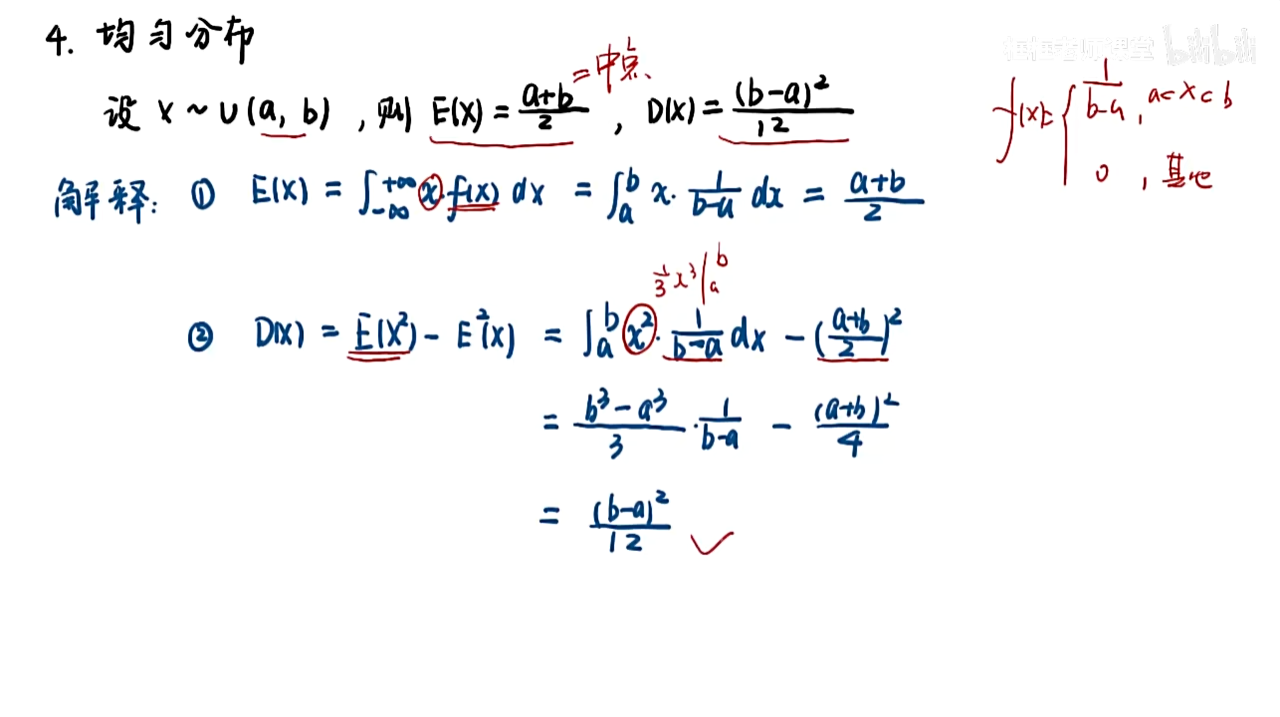 4. 均匀分布
设 X ~ U (a, b) , 则 E(X) = \frac{a+b}{2} = 中点、, D(X) = \frac{(b-a)^2}{12}
f(x) = { \frac{1}{b-a}, a < x < b
0 , 其他
解释: ① E(X) = ∫_{-∞}^{+∞} x · f(x) dx = ∫_a^b x · \frac{1}{b-a} dx = \frac{a+b}{2}
\frac{1}{3} x^3 |_a^b
② D(X) = E(X^2) - E^2(X) = ∫_a^b x^2 · \frac{1}{b-a} dx - (\frac{a+b}{2})^2
= \frac{b^3 - a^3}{3} · \frac{1}{b-a} - \frac{(a+b)^2}{4}
= \frac{(b-a)^2}{12} ✓
bilibili